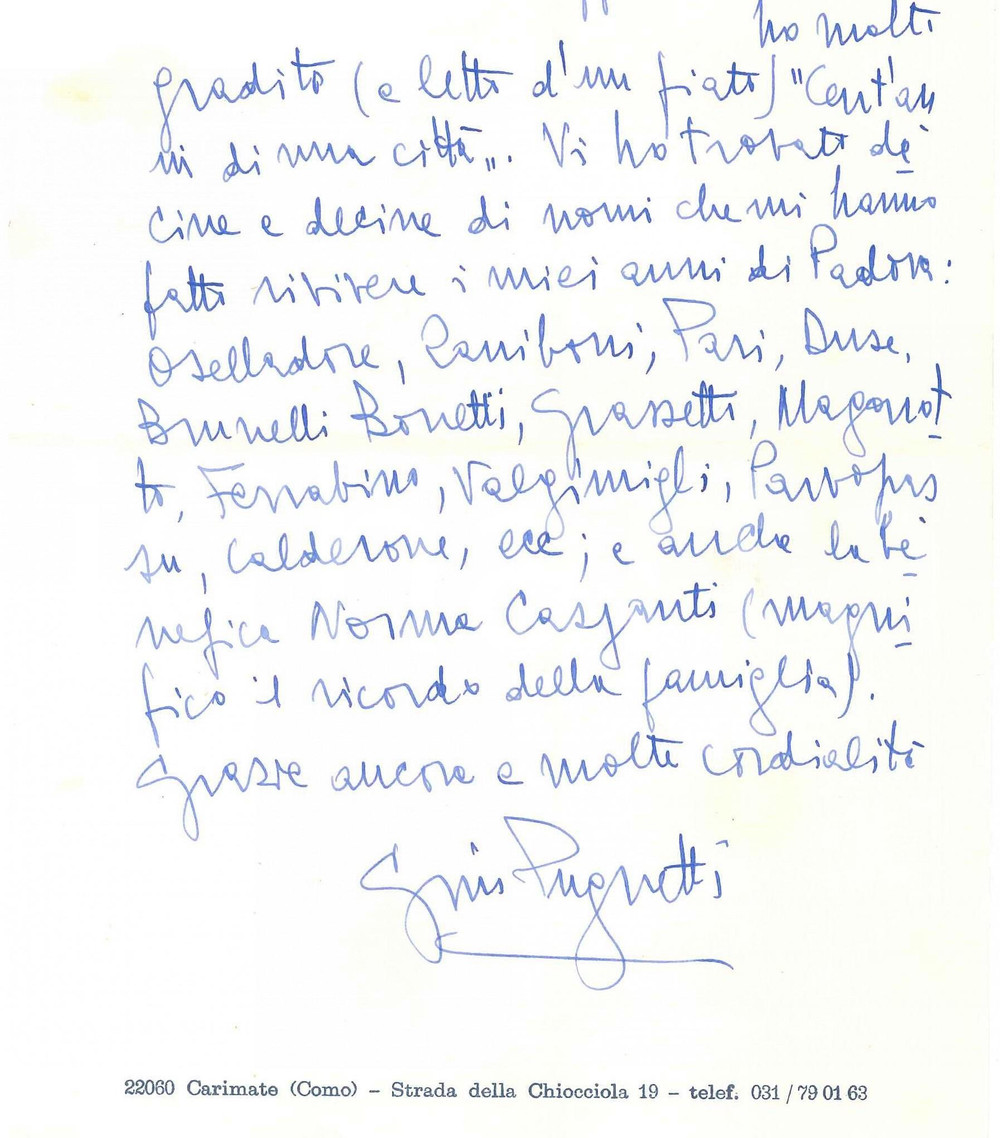 ho molto
gradito (e letto d'un fiato) "Cent'an
ni di una città„. Vi ho trovato de
cine e decine di nomi che mi hanno
fatto rivivere i miei anni di Padova:
Oselladore, Zaniboni, Pari, Duse,
Brunelli Bonetti, Grassetto, Maganot
to, Ferrabino, Valgimigli, Parvopas
su, Calderone, ecc; e anche la be
nefica Norma Casganti (magni
fico il ricordo della famiglia).
Grazie ancora e molte cordialità
Gino Pugnetti
22060 Carimate (Como) – Strada della Chiocciola 19 – telef. 031 / 79 01 63